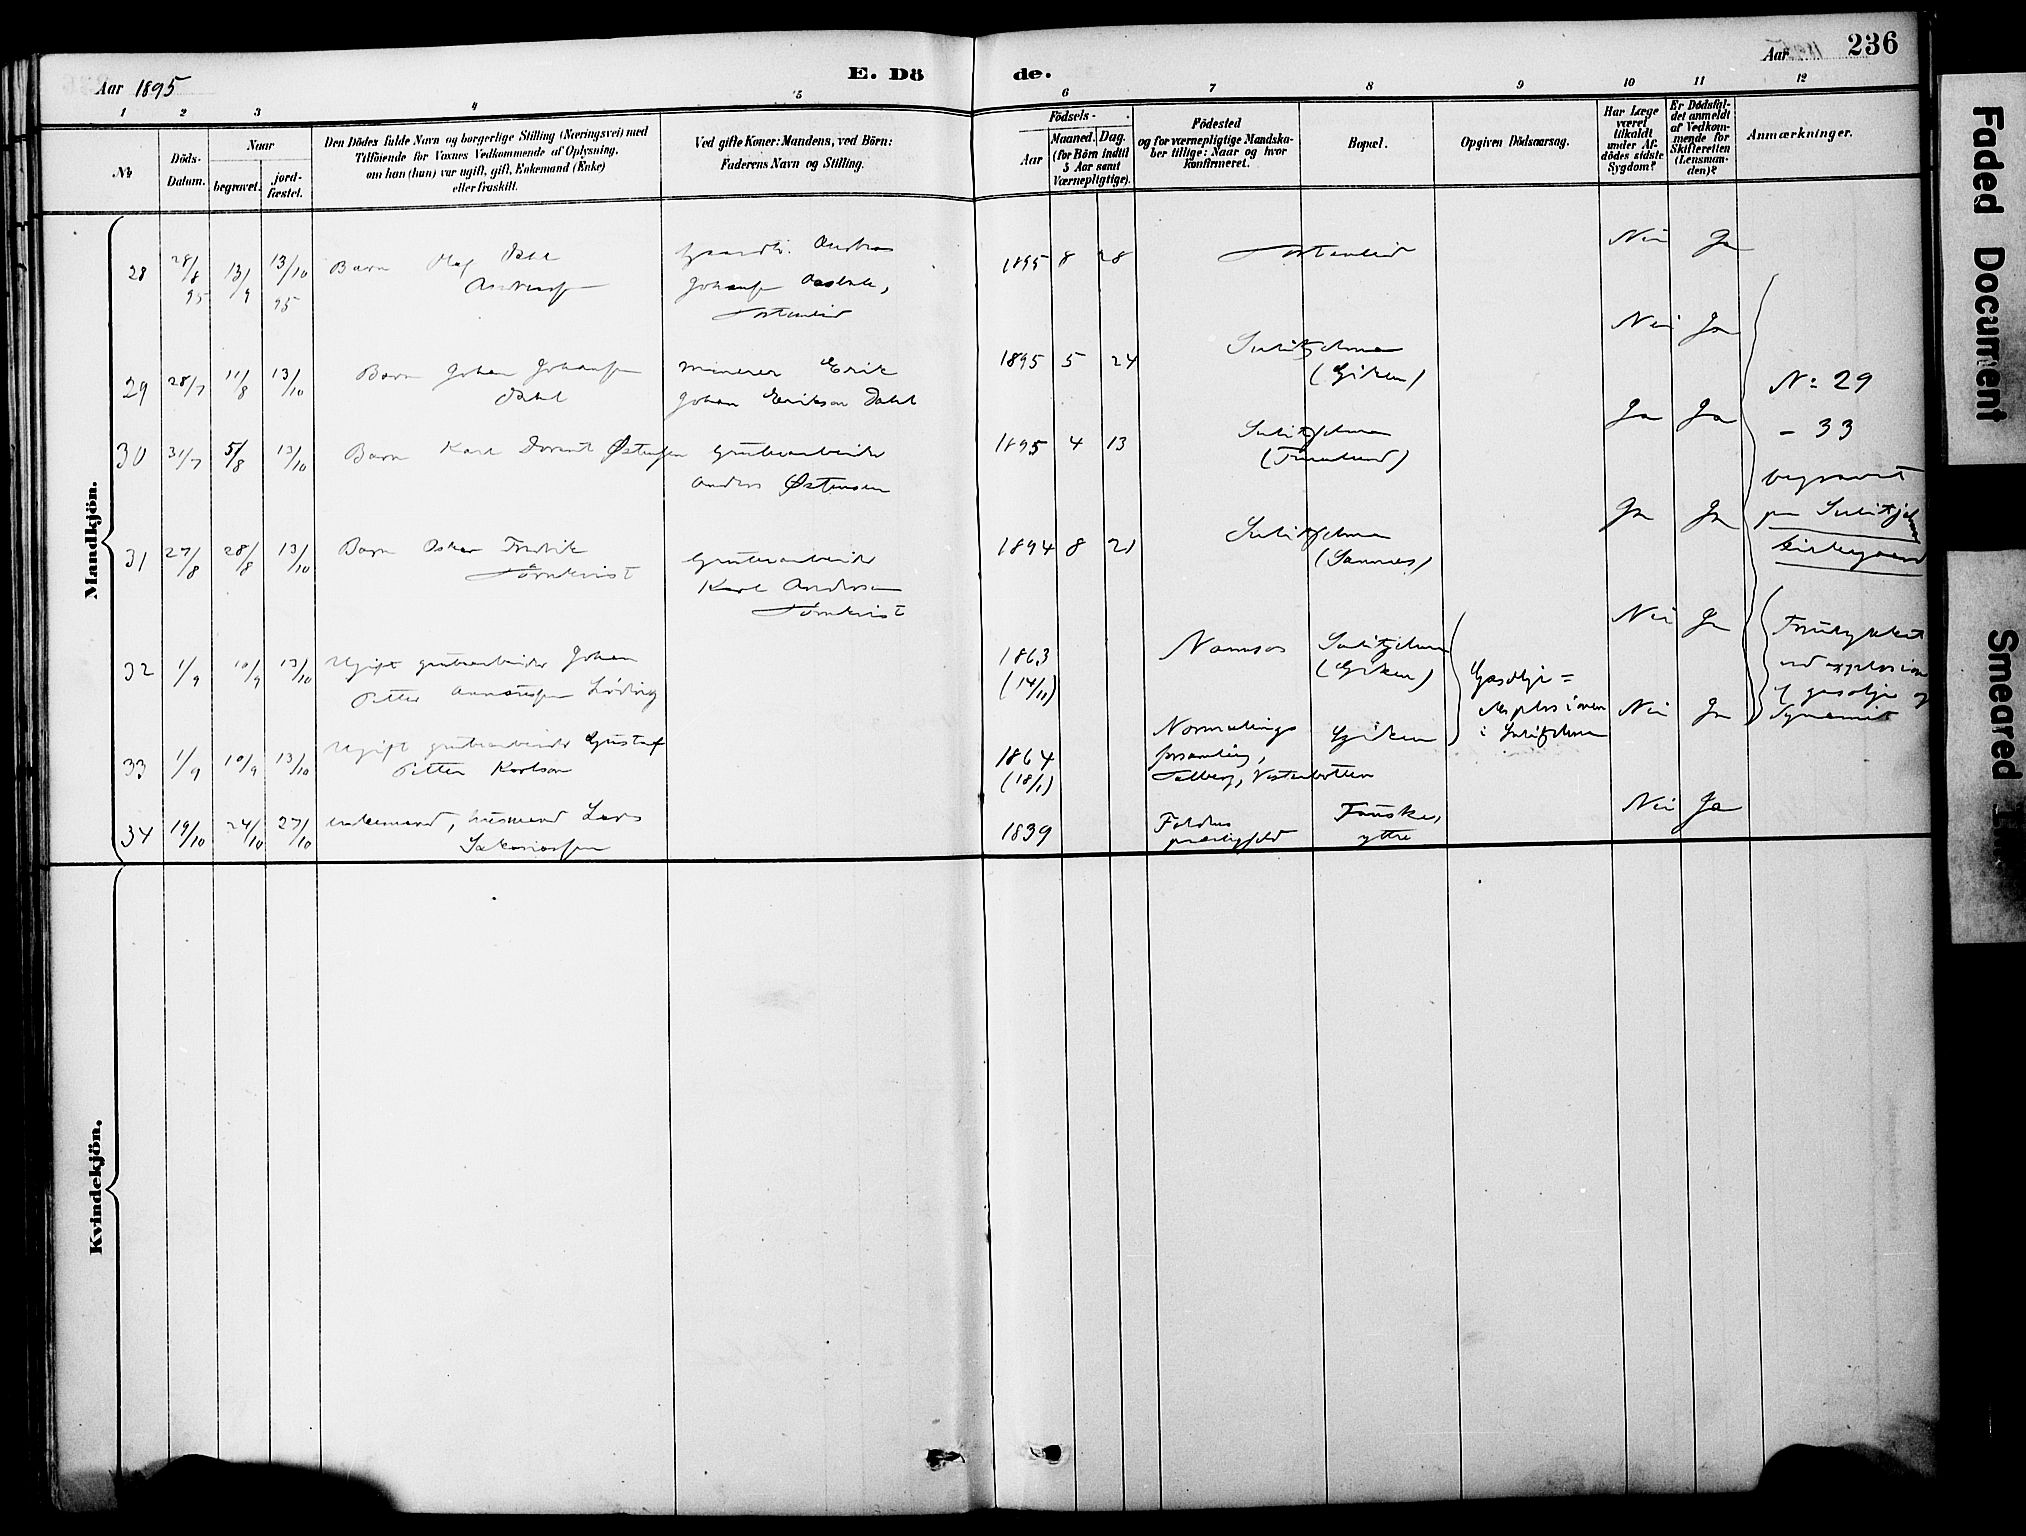 Aar 1895
E. Dö
de.
Aar
236
1 2 3 4 5 6 7 8 9 10 11 12
No
Döds-
Datum.
Naar
begravet.
jord-
fæstet.
Den Dödes fulde Navn og borgerlige Stilling (Næringsvei) med
Tilföiende for Voxnes Vedkommende af Oplysning,
om han (hun) var ugift, gift, Enkemand (Enke)
eller fraskilt.
Ved gifte Koner: Mandens, ved Börn:
Faderens Navn og Stilling.
Födsels-
Aar
Maaned. Dag.
(for Börn indtil
5 Aar samt
Værnepligtige).
Födested
og for værnepligtige Mandska-
ber tillige: Naar og hvor
konfirmeret.
Bopæl.
Opgiven Dödsaarsag.
Har Læge
været
tilkaldt
under Af-
dödes sidste
Sygdom?
Er Dödsfal-
det anmeldt
af Vedkom-
mende for
Skifteretten
(Lensman-
den)?
Anmærkninger.
Mandkjön.
28 28/8 95 13/9 13/10 95 Barn Olaf 1895 8 28 Nei Ja
Andreas
29 28/7 11/8 13/10 Barn Johan Johansen Minerer Erik 1895 5 24 Sulitjelma Nei Ja
Dahl Johan Erikson Dahl (Giken)
30 31/7 5/8 13/10 Barn Karl Østensen Grubearbeider 1895 4 13 Sulitjelma Ja Ja
Anders Østensen (Furulund)
31 27/8 28/8 13/10 Barn Oskar Fredrik Grubearbeider 1894 8 21 Sulitjelma Ja Ja
Törnkvist Karl Anderson (Sannes)
Törnkvist
No 29
- 33
begravet
paa Sulitjelma
kirkegaard
32 1/9 10/9 13/10 Ugift grubearbeider Johan 1863 Namsos Sulitjelma Nei Ja
Petter (14/11) (Giken)
Gasolje=
explosionen
i Sulitjelma
Forulykket
ved explosion
af gasolje og
dynamit
33 1/9 10/9 13/10 Ugift grubearbeider Gustaf 1864 Normalings Giken Nei Ja
Petter Karlson (18/1) forsamling,
Vesterbotten
34 19/10 24/10 27/10 enkemand, husmand Lars 1839 Foldens Fauske, Nei Ja
Sakariassen præstegjeld ytre
Kvindekjön.
Faded Document
Smeared